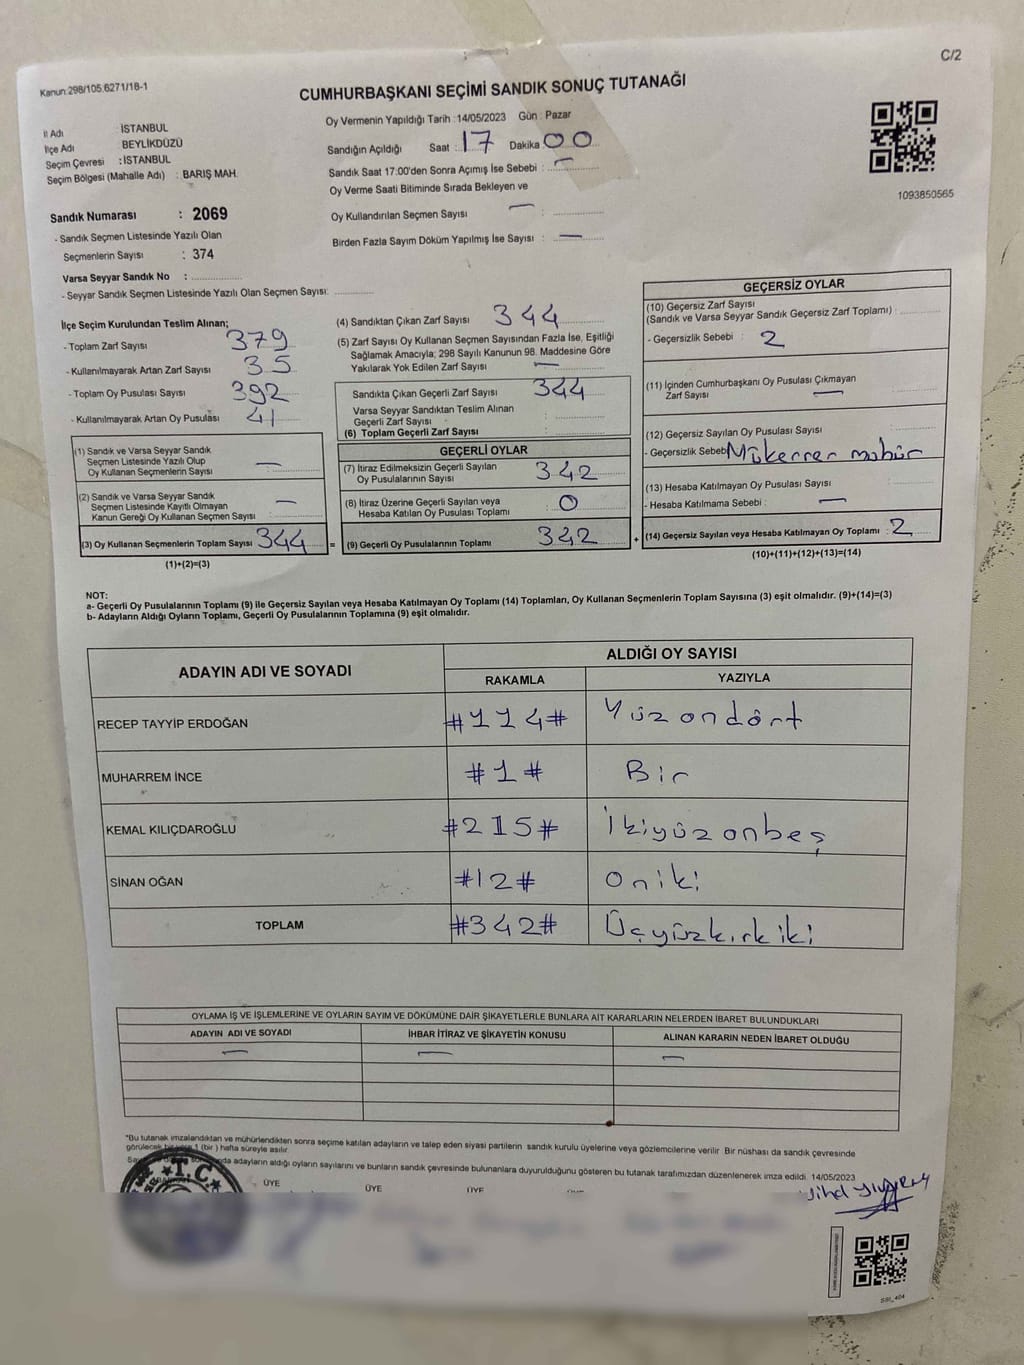 C/2
Kanun:298/105.6271/18-1
CUMHURBAŞKANI SEÇİMİ SANDIK SONUÇ TUTANAĞI
İl Adı : İSTANBUL
İlçe Adı : BEYLİKDÜZÜ
Seçim Çevresi : İSTANBUL
Seçim Bölgesi (Mahalle Adı) : BARIŞ MAH.
Oy Vermenin Yapıldığı Tarih :14/05/2023 Gün : Pazar
Sandığın Açıldığı Saat : 17 Dakika 00
Sandık Saat 17:00'den Sonra Açımış İse Sebebi : —
Oy Verme Saati Bitiminde Sırada Bekleyen ve
Oy Kullandırılan Seçmen Sayısı — :
Birden Fazla Sayım Döküm Yapılmış İse Sayısı : —
1093850565
Sandık Numarası : 2069
- Sandık Seçmen Listesinde Yazılı Olan
Seçmenlerin Sayısı : 374
Varsa Seyyar Sandık No :
- Seyyar Sandık Seçmen Listesinde Yazılı Olan Seçmen Sayısı:
İlçe Seçim Kurulundan Teslim Alınan;
- Toplam Zarf Sayısı 379
- Kullanılmayarak Artan Zarf Sayısı 35
- Toplam Oy Pusulası Sayısı 392
- Kullanılmayarak Artan Oy Pusulası 41
(1) Sandık ve Varsa Seyyar Sandık
Seçmen Listesinde Yazılı Olup
Oy Kullanan Seçmenlerin Sayısı —
(2) Sandık ve Varsa Seyyar Sandık
Seçmen Listesinde Kayıtlı Olmayan
Kanun Gereği Oy Kullanan Seçmen Sayısı : —
(3) Oy Kullanan Seçmenlerin Toplam Sayısı 344
(1)+(2)=(3)
(4) Sandıktan Çıkan Zarf Sayısı 344
(5) Zarf Sayısı Oy Kullanan Seçmen Sayısından Fazla İse, Eşitliği
Sağlamak Amacıyla; 298 Sayılı Kanunun 98. Maddesine Göre
Yakılarak Yok Edilen Zarf Sayısı —
Sandıkta Çıkan Geçerli Zarf Sayısı 344
Varsa Seyyar Sandıktan Teslim Alınan
Geçerli Zarf Sayısı :
(6) Toplam Geçerli Zarf Sayısı :
GEÇERLİ OYLAR
(7) İtiraz Edilmeksizin Geçerli Sayılan
Oy Pusulalarının Sayısı 342
(8) İtiraz Üzerine Geçerli Sayılan veya
Hesaba Katılan Oy Pusulası Toplamı 0
= (9) Geçerli Oy Pusulalarının Toplamı 342 +
GEÇERSİZ OYLAR
(10) Geçersiz Zarf Sayısı
(Sandık ve Varsa Seyyar Sandık Geçersiz Zarf Toplamı) :
- Geçersizlik Sebebi : 2
(11) İçinden Cumhurbaşkanı Oy Pusulası Çıkmayan
Zarf Sayısı — :
(12) Geçersiz Sayılan Oy Pusulası Sayısı :
- Geçersizlik Sebebi Mükerrer mühür
(13) Hesaba Katılmayan Oy Pusulası Sayısı :
- Hesaba Katılmama Sebebi : —
(14) Geçersiz Sayılan veya Hesaba Katılmayan Oy Toplamı : 2
(10)+(11)+(12)+(13)=(14)
NOT:
a- Geçerli Oy Pusulalarının Toplamı (9) ile Geçersiz Sayılan veya Hesaba Katılmayan Oy Toplamı (14) Toplamları, Oy Kullanan Seçmenlerin Toplam Sayısına (3) eşit olmalıdır. (9)+(14)=(3)
b- Adayların Aldığı Oyların Toplamı, Geçerli Oy Pusulalarının Toplamına (9) eşit olmalıdır.
ADAYIN ADI VE SOYADI ALDIĞI OY SAYISI
RAKAMLA YAZIYLA
RECEP TAYYİP ERDOĞAN #114# Yüzondört
MUHARREM İNCE #1# Bir
KEMAL KILIÇDAROĞLU #215# İkiyüzonbeş
SİNAN OĞAN #12# Oniki
TOPLAM #342# Üçyüzkırkiki
OYLAMA İŞ VE İŞLEMLERİNE VE OYLARIN SAYIM VE DÖKÜMÜNE DAİR ŞİKAYETLERLE BUNLARA AİT KARARLARIN NELERDEN İBARET BULUNDUKLARI
ADAYIN ADI VE SOYADI İHBAR İTİRAZ VE ŞİKAYETİN KONUSU ALINAN KARARIN NEDEN İBARET OLDUĞU
— — —
*Bu tutanak imzalandıktan ve mühürlendikten sonra seçime katılan adayların ve talep eden siyasi partilerin sandık kurulu üyelerine veya gözlemcilerine verilir. Bir nüshası da sandık çevresinde
görülecek bir yere 1 (bir ) hafta süreyle asılır.
adayların aldığı oyların sayılarını ve bunların sandık çevresinde bulunanlara duyurulduğunu gösteren bu tutanak tarafımızdan düzenlenerek imza edildi. 14/05/2023
T.C.
ÜYE ÜYE ÜYE
SSI_404